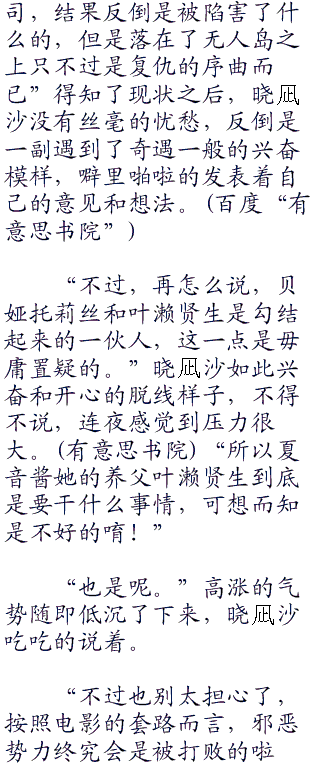 司，结果反倒是被陷害了什
么的，但是落在了无人岛之
上只不过是复仇的序曲而
已”得知了现状之后，晓凪
沙没有丝毫的忧愁，反倒是
一副遇到了奇遇一般的兴奋
模样，噼里啪啦的发表着自
己的意见和想法。(百度“有
意思书院”)
“不过，再怎么说，贝
娅托莉丝和叶濑贤生是勾结
起来的一伙人，这一点是毋
庸置疑的。”晓凪沙如此兴
奋和开心的脱线样子，不得
不说，连夜感觉到压力很
大。(有意思书院)“所以夏
音酱她的养父叶濑贤生到底
是要干什么事情，可想而知
是不好的唷！”
“也是呢。”高涨的气
势随即低沉了下来，晓凪沙
吃吃的说着。
“不过也别太担心了，
按照电影的套路而言，邪恶
势力终究会是被打败的啦